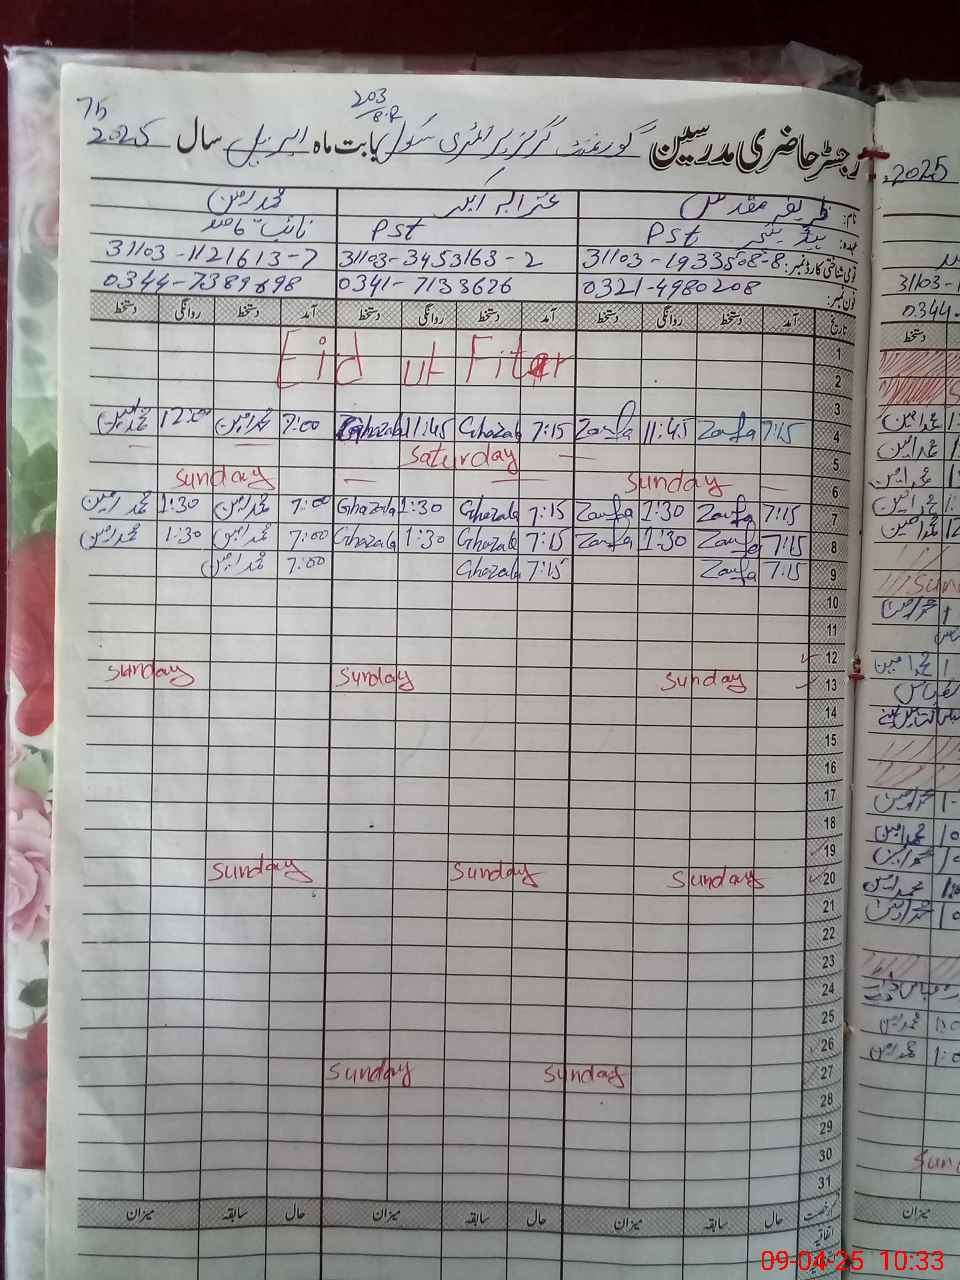 75
203
8.R
رجسٹر حاضری مدرسین گورنمنٹ گرلز پرائمری سکول بابت ماہ اپریل سال 2025
نام: ظریفہ مقدس محمد امین
عہدہ: ہیڈ ٹیچر Pst Pst نائب قاصد
قومی شناختی کارڈ نمبر: 31103-1933508-8 31103-3453163-2 31103-1121613-7
فون نمبر: 0321-4980208 0341-7133626 0344-7389698
تاریخ آمد دستخط روانگی دستخط آمد دستخط روانگی دستخط آمد دستخط روانگی دستخط
1 Eid ut Fiter
2
3
4 7:15 Zarfa 11:45 Zarfa 7:15 Ghazala 11:45 Ghazala 7:00 محمد امین 12:00 محمد امین
5 Saturday
6 Sunday Sunday
7 7:15 Zarfa 1:30 Zarfa 7:15 Ghazala 1:30 Ghazala 7:00 محمد امین 1:30 محمد امین
8 7:15 Zarfa 1:30 Zarfa 7:15 Ghazala 1:30 Ghazala 7:00 محمد امین 1:30 محمد امین
9 7:15 Zarfa 7:15 Ghazala 7:00 محمد امین
10
11
12
13 Sunday Sunday Sunday
14
15
16
17
18
19
20 Sunday Sunday Sunday
21
22
23
24
25
26
27 Sunday Sunday
28
29
30
31
رخصت حال سابقہ میزان حال سابقہ میزان حال سابقہ میزان
اتفاقیہ
2025
31103-1
0344-
دستخط
محمد امین
محمد امین
محمد امین
محمد امین
محمد امین
Sun
محمد امین
محمد امین
محمد امین
محمد امین
محمد امین
محمد امین
محمد امین
محمد امین
محمد امین
Sun
میزان
09-04-25 10:33